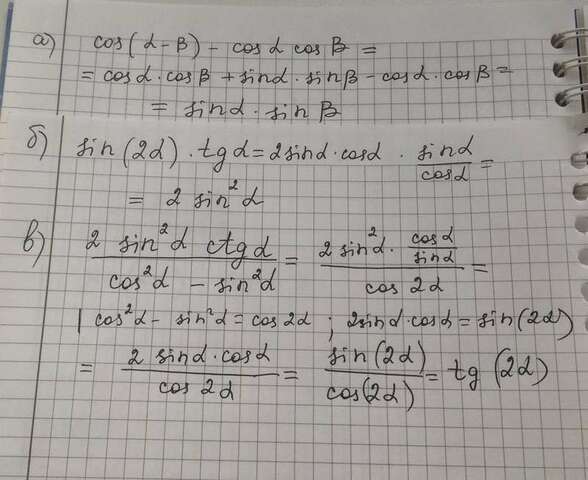 а) cos(α - β) - cos α cos β =
= cos α · cos β + sin α · sin β - cos α · cos β =
= sin α · sin β
б) sin(2α) · tg α = 2 sin α · cos α · \frac{sin α}{cos α} =
= 2 sin² α
в) \frac{2 sin² α ctg α}{cos² α - sin² α} = \frac{2 sin² α · \frac{cos α}{sin α}}{cos 2α} =
| cos² α - sin² α = cos 2α ; 2 sin α · cos α = sin(2α)
= \frac{2 sin α · cos α}{cos 2α} = \frac{sin(2α)}{cos(2α)} = tg(2α)